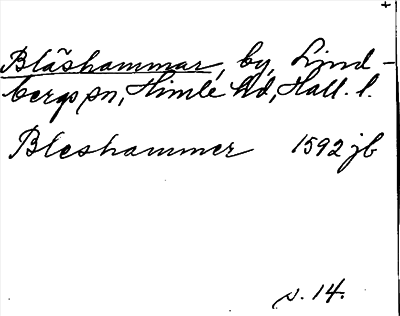 +
Blåshammar, by, Lind-
bergs sn, Himle hd, Hall. l.
Bleshammer 1592 jb
s. 14.